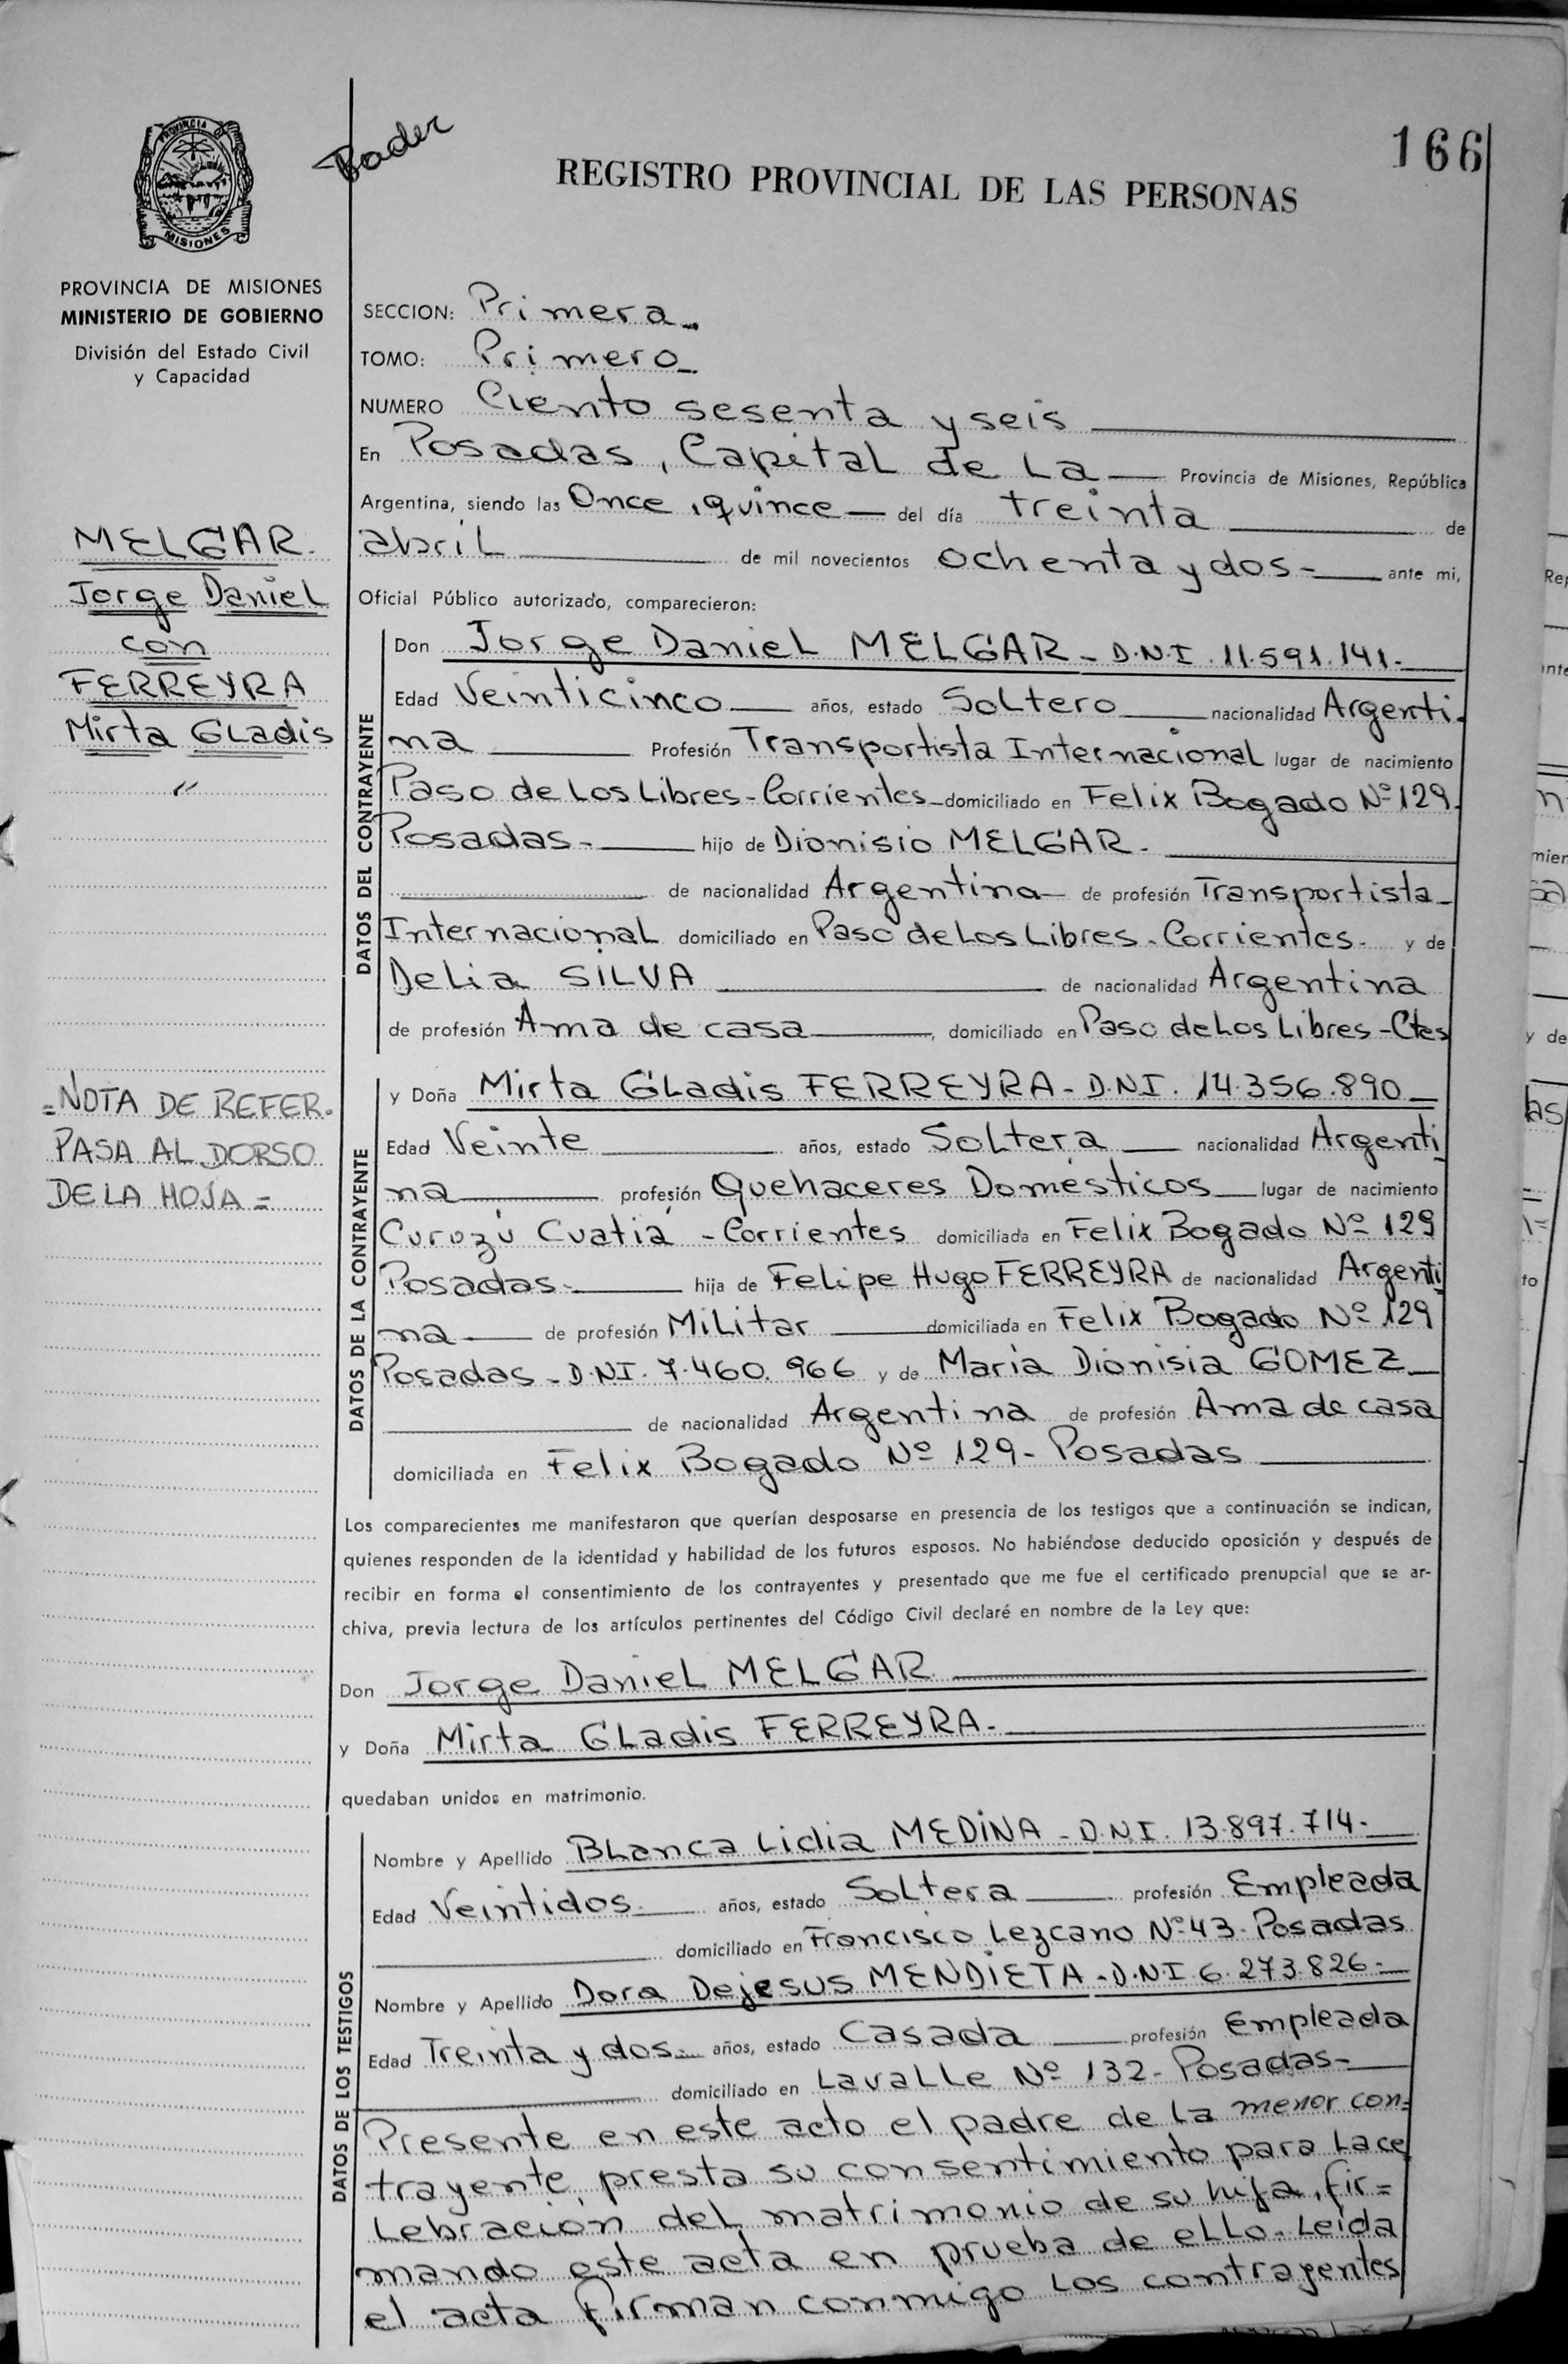 166
Bader
REGISTRO PROVINCIAL DE LAS PERSONAS
PROVINCIA DE MISIONES
MINISTERIO DE GOBIERNO
División del Estado Civil
y Capacidad
MELGAR.
Jorge Daniel
con
FERREYRA
Mirta Gladis
"
=NOTA DE REFER.
PASA AL DORSO
DE LA HOJA=
SECCION: Primera-
TOMO: Primero-
NUMERO Ciento sesenta y seis
En Posadas, Capital de La Provincia de Misiones, República
Argentina, siendo las Once, quince del día treinta de
abril de mil novecientos ochenta y dos- ante mi,
Oficial Público autorizado, comparecieron:
DATOS DEL CONTRAYENTE
Don Jorge Daniel MELGAR - D.N.I. 11.591.141.-
Edad Veinticinco años, estado Soltero nacionalidad Argenti-
na Profesión Transportista Internacional lugar de nacimiento
Paso de Los Libres-Corrientes-domiciliado en Felix Bogado Nº 129-
Posadas- hijo de Dionisio MELGAR-
de nacionalidad Argentina de profesión Transportista-
Internacional domiciliado en Paso de Los Libres-Corrientes- y de
Delia SILVA de nacionalidad Argentina
de profesión Ama de casa, domiciliado en Paso de Los Libres-Ctes
DATOS DE LA CONTRAYENTE
y Doña Mirta Gladis FERREYRA - D.N.I. 14.356.890
Edad Veinte años, estado Soltera nacionalidad Argenti
na profesión Quehaceres Domésticos lugar de nacimiento
Curuzú Cuatiá -Corrientes domiciliada en Felix Bogado Nº 129
Posadas- hija de Felipe Hugo FERREYRA de nacionalidad Argenti
na de profesión Militar domiciliada en Felix Bogado Nº 129
Posadas - D.N.I. 7.460.966 y de María Dionisia GOMEZ
de nacionalidad Argentina de profesión Ama de casa
domiciliada en Felix Bogado Nº 129- Posadas
Los comparecientes me manifestaron que querían desposarse en presencia de los testigos que a continuación se indican,
quienes responden de la identidad y habilidad de los futuros esposos. No habiéndose deducido oposición y después de
recibir en forma el consentimiento de los contrayentes y presentado que me fue el certificado prenupcial que se ar-
chiva, previa lectura de los artículos pertinentes del Código Civil declaré en nombre de la Ley que:
Don Jorge Daniel MELGAR
y Doña Mirta Gladis FERREYRA-
quedaban unidos en matrimonio.
DATOS DE LOS TESTIGOS
Nombre y Apellido Blanca Lidia MEDINA - D.N.I. 13.897.714.-
Edad Veintidos años, estado Soltera profesión Empleada
domiciliado en Francisco Lezcano Nº 43- Posadas
Nombre y Apellido Dora Dejesus MENDIETA - D.N.I. 6.273.826.-
Edad Treinta y dos- años, estado Casada profesión Empleada
domiciliado en Lavalle Nº 132- Posadas-
Presente en este acto el padre de la menor con=
trayente, presta su consentimiento para la ce
lebración del matrimonio de su hija, fir=
mando este acta en prueba de ello- Leída
el acta firman conmigo los contrayentes